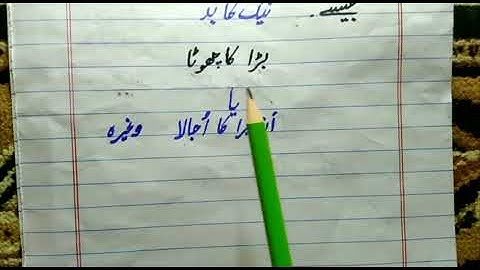 جیسے۔ نیک کا بد
بڑا کا چھوٹا
یا
کا اُجالا وغیرہ